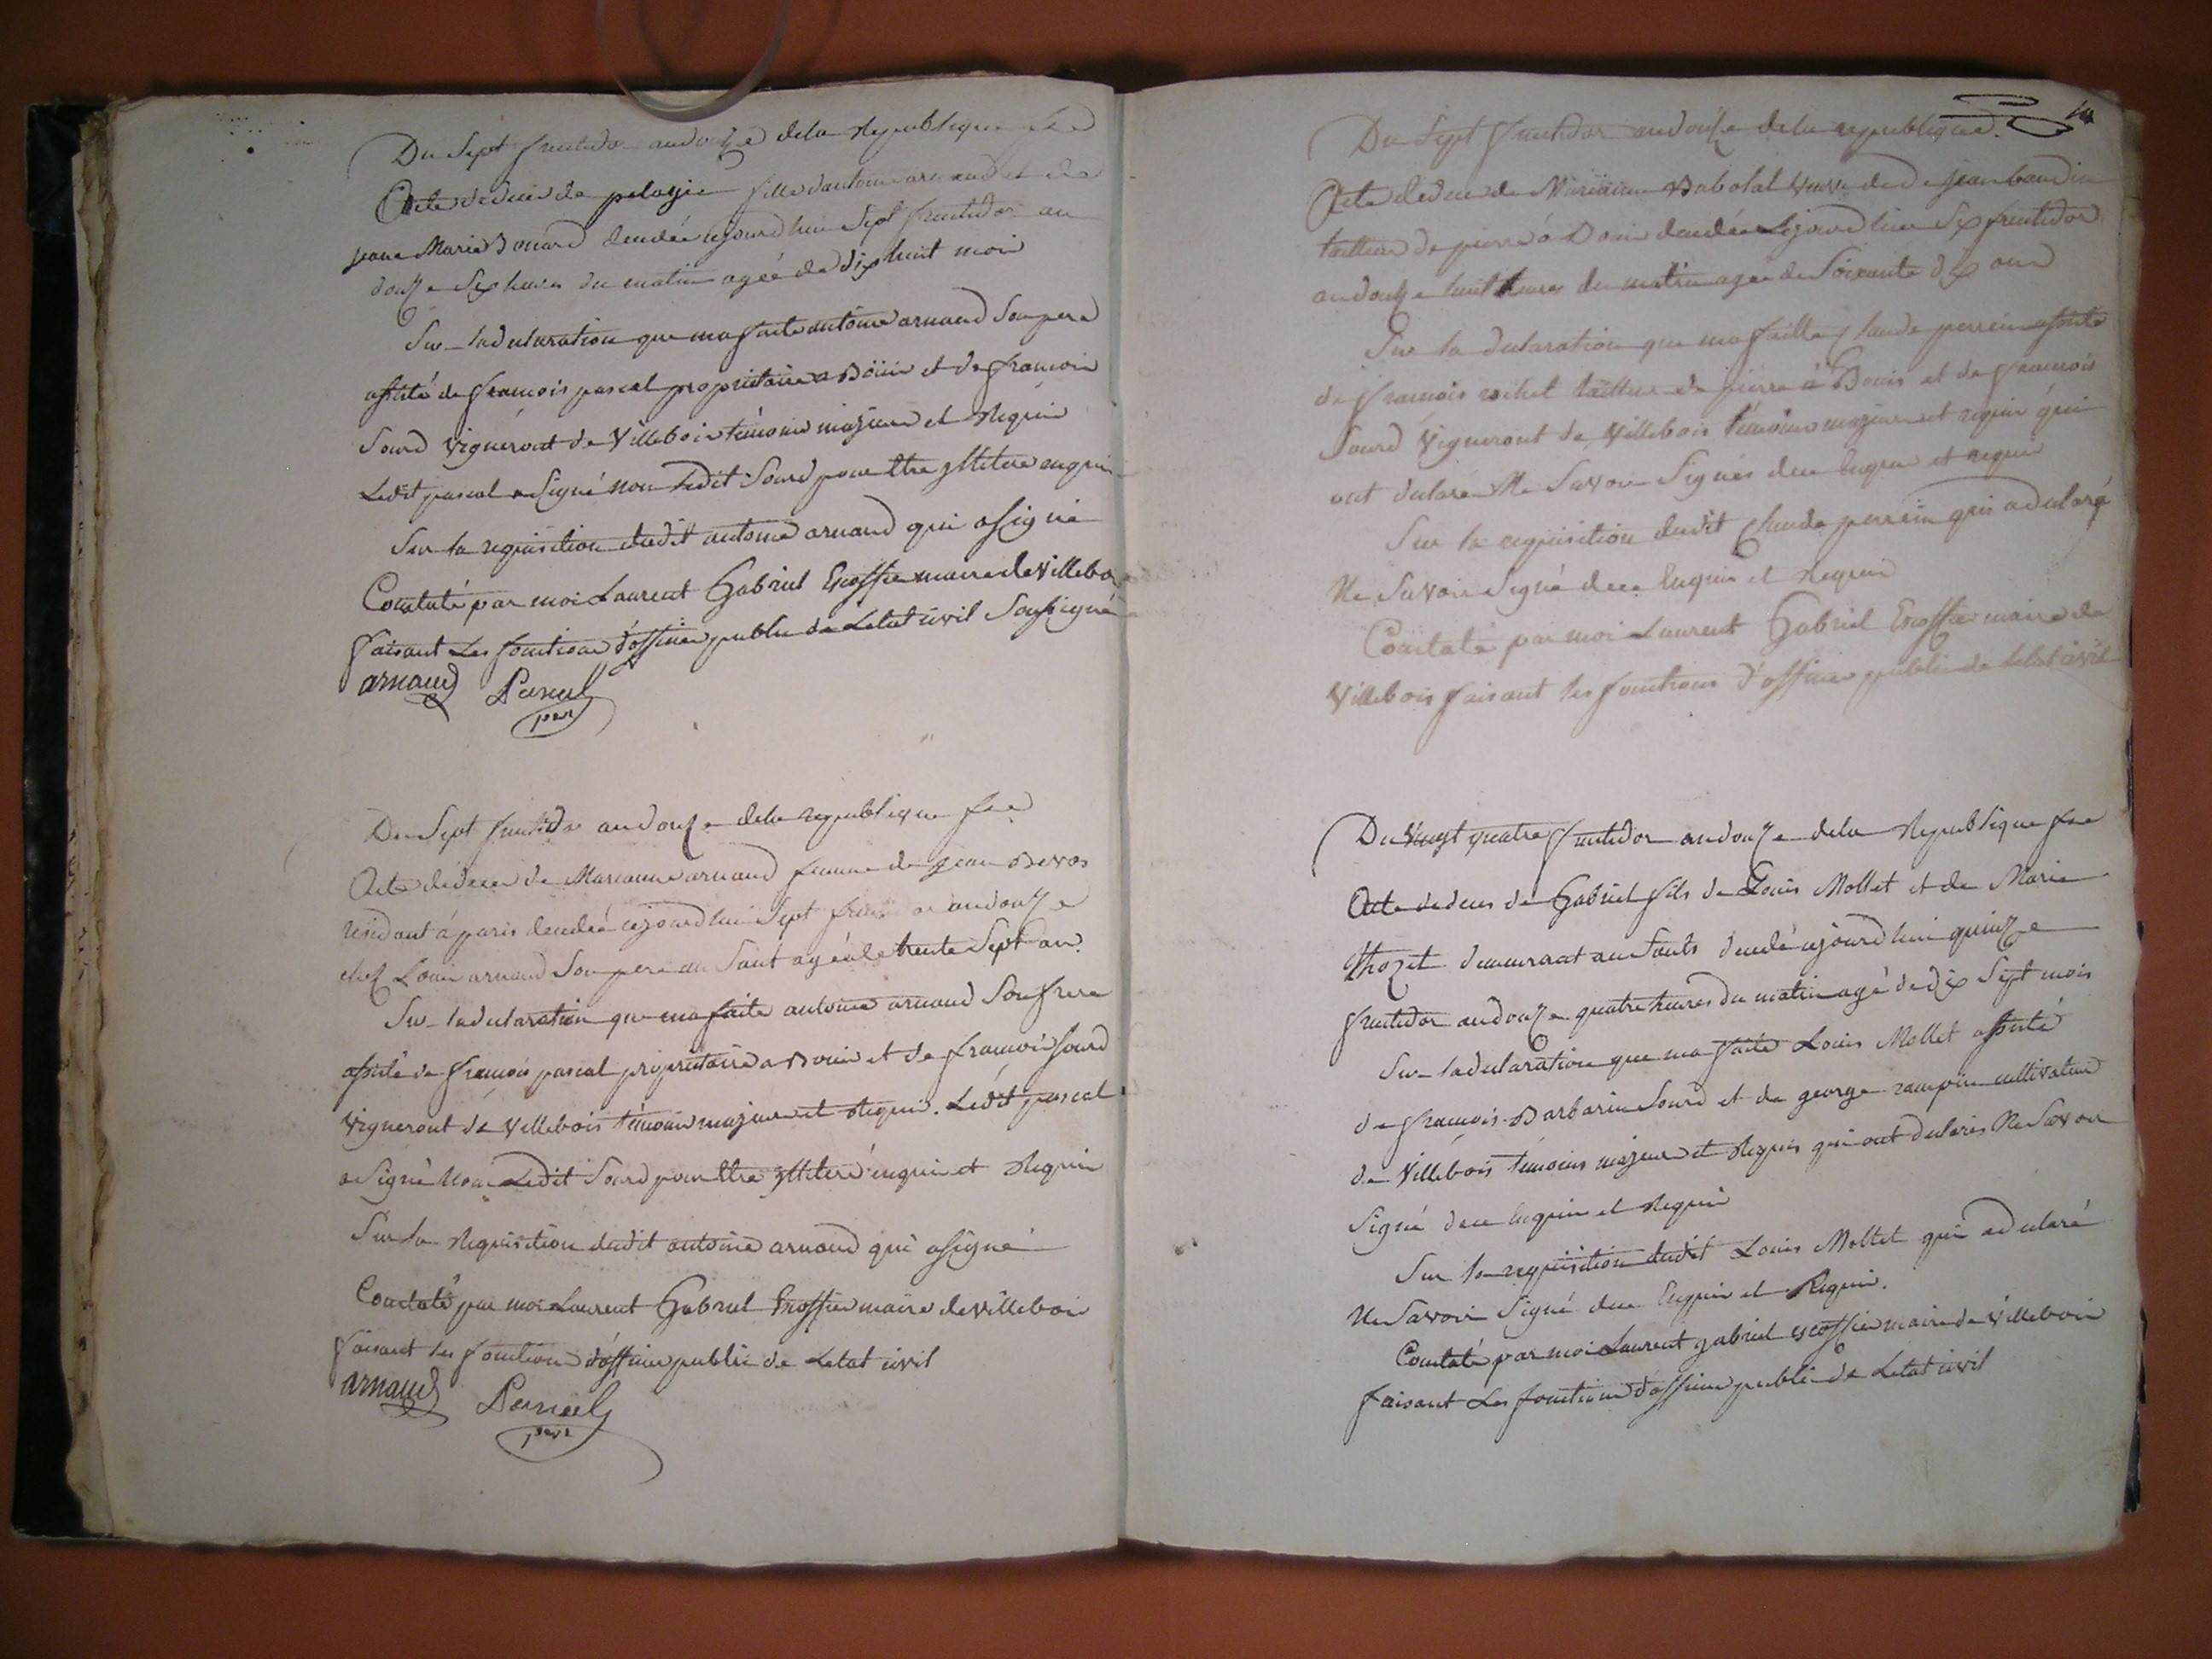 Du Sept fructidor an douze de la republique fse
Acte de deces de pelagie fille d'antoine arnaud et de
jeane Marie Bouard decedée cejourd'hui Sept fructidor an
douze Six heures du matin agée de dix huit mois
Sur la declaration que ma faite antoine arnaud Son pere
assisté de francois pascal proprietaire a Boüis et de francois
Sourd vigneront de Villebois témoins majeurs et Requis
Ledit pascal a Signé non Ledit Sourd pour etre enquis
Sur la requisition dudit antoine arnaud qui a Signé
Constaté par moi Laurent Gabriel Escoffier maire de Villebois
faisant Les fonctions d'officier public de Letat civil Soussigné
arnaud Pascal
pere
Du Sept fructidor an douze de la republique fse
Acte de deces de Marianne arnaud femme de jean
residant á paris decedeé cejourd'hui Sept fructidor an douze
chez Louis arnaud Son pere au Saut agée de trente Sept ans
Sur la declaration que ma faite antoine arnaud Son frere
assisté de francois pascal proprietaire a Bouis et de francois Sourd
vigneront de Villebois témoins majeurs et Requis. Ledit pascal
a Signé non Ledit Sourd pour etre enquis et Requis
Sur la Requisition dudit antoine arnaud qui a Signé
Constaté par moi Laurent Gabriel Escoffier maire de Villebois
faisant les fonctions d'officier public de Letat civil
arnaud Pascal
pere
Du Sept fructidor an douze de la republique.
Acte de deces de Marianne Babolat veuve de jean baudin
tailleur de pierre á Bouis decedée Cejourd'hui Six fructidor
an douze huit heures du matin agée de Soixante dix ans
Sur la declaration que ma faitte Claude perrin assisté
de francois rochet tailleur de pierre á Bouis et de francois
Sourd Vigneront de Villebois témoins majeurs et requis qui
ont declaré Ne Savoir Signés de ce Enquis et requis
Sur la requisition dudit Claude perrin qui a declaré
Ne Savoir Signé de ce Enquis et Requis
Constaté par moi Laurent Gabriel Escoffier maire de
Villebois faisant les fonctions d'officier public de letat civil
Du Vingt quatre fructidor an douze de la Republique fse
Acte de deces de Gabriel fils de Louis Mollet et de Marie
Thozet demeurant au Sauts decedé cejourd'hui quinze
fructidor an douze quatre heures du matin agé de dix Sept mois
Sur la declaration que ma faite Louis Mollet assisté
de francois Barbarin Sourd et de george cultivateur
de Villebois témoins majeurs et Requis qui ont declarés Ne Savoir
Signé de ce Enquis et Requis
Sur la requisition dudit Louis Mollet qui a declaré
Ne Savoir Signé de ce Enquis et Requis.
Constaté par moi Laurent gabriel escoffier maire de Villebois
faisant Les fonctions d'officier public de Letat civil